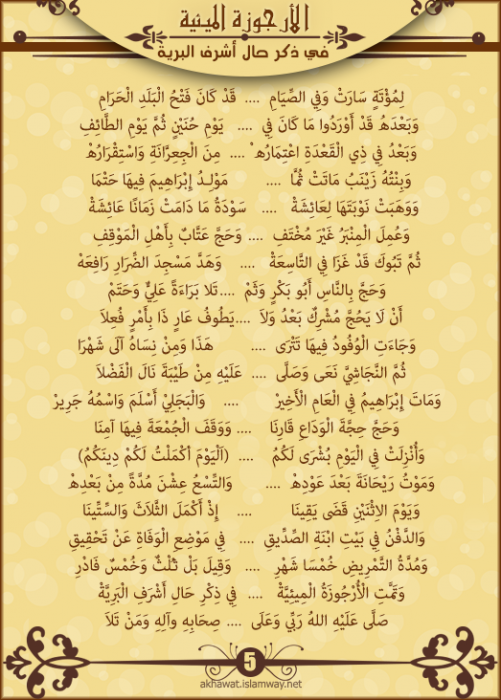 الأرجوزة الميئية
في ذكر حال أشرف البرية
لِمُؤْتَةٍ سَارَتْ وَفِي الصِّيَامِ .... قَدْ كَانَ فَتْحُ الْبَلَدِ الْحَرَامِ
وَبَعْدَهُ قَدْ أَوْرَدُوا مَا كَانَ فِي .... يَوْمِ حُنَيْنٍ ثُمَّ يَوْمِ الطَّائِفِ
وَبَعْدُ فِي ذِي الْقَعْدَةِ اعْتِمَارُهُ .... مِنَ الْجِعِرَّانَةِ وَاسْتِقْرَارُهْ
وَبِنْتُهُ زَيْنَبُ مَاتَتْ ثُمَّا .... مَوْلِدُ إِبْرَاهِيمَ فِيهَا حَتْمَا
وَوَهَبَتْ نَوْبَتَهَا لِعَائِشَةْ .... سَوْدَةُ مَا دَامَتْ زَمَانًا عَائِشَةْ
وَعُمِلَ الْمِنْبَرُ غَيْرَ مُخْتَفِ .... وَحَجَّ عَتَّابٌ بِأَهْلِ الْمَوْقِفِ
ثُمَّ تَبُوكَ قَدْ غَزَا فِي التَّاسِعَةْ .... وَهَدَّ مَسْجِدَ الضِّرَارِ رَافِعَةْ
وَحَجَّ بِالنَّاسِ أَبُو بَكْرٍ وَثَمْ .... تَلَا بَرَاءَةً عَلِيٌّ وَحَتَمْ
أَنْ لَا يَحُجَّ مُشْرِكٌ بَعْدُ وَلَا .... يَطُوفُ عَارٍ ذَا بِأَمْرٍ فُعِلَا
وَجَاءَتِ الْوُفُودُ فِيهَا تَتْرَى .... هَذَا وَمِنْ نِسَاهُ آلَى شَهْرَا
ثُمَّ النَّجَاشِيَّ نَعَى وَصَلَّى .... عَلَيْهِ مِنْ طَيْبَةَ نَالَ الْفَضْلَا
وَمَاتَ إِبْرَاهِيمُ فِي الْعَامِ الْأَخِيرْ .... وَالْبَجَلِيْ أَسْلَمَ وَاسْمُهُ جَرِيرْ
وَحَجَّ حِجَّةَ الْوَدَاعِ قَارِنَا .... وَوَقَفَ الْجُمْعَةَ فِيهَا آمِنَا
وَأُنْزِلَتْ فِي الْيَوْمِ بُشْرَى لَكُمُ .... (اَلْيَوْمَ أَكْمَلْتُ لَكُمْ دِينَكُمُ)
وَمَوْتُ رَيْحَانَةَ بَعْدَ عَوْدِهْ .... وَالتِّسْعُ عِشْنَ مُدَّةً مِنْ بَعْدِهْ
وَيَوْمَ الِاثْنَيْنِ قَضَى يَقِينَا .... إِذْ أَكْمَلَ الثَّلَاثَ وَالسِّتِّينَا
وَالدَّفْنُ فِي بَيْتِ ابْنَةِ الصِّدِّيقِ .... فِي مَوْضِعِ الْوَفَاةِ عَنْ تَحْقِيقِ
وَمُدَّةُ التَّمْرِيضِ خُمْسَا شَهْرِ .... وَقِيلَ بَلْ ثُلْثٌ وَخُمْسٌ فَادْرِ
وَتَمَّتِ الْأُرْجُوزَةُ الْمِيئِيَّةْ .... فِي ذِكْرِ حَالِ أَشْرَفِ الْبَرِيَّةْ
صَلَّى عَلَيْهِ اللهُ رَبِّي وَعَلَى .... صِحَابِهِ وَآلِهِ وَمَنْ تَلَا
5
akhawat.islamway.net